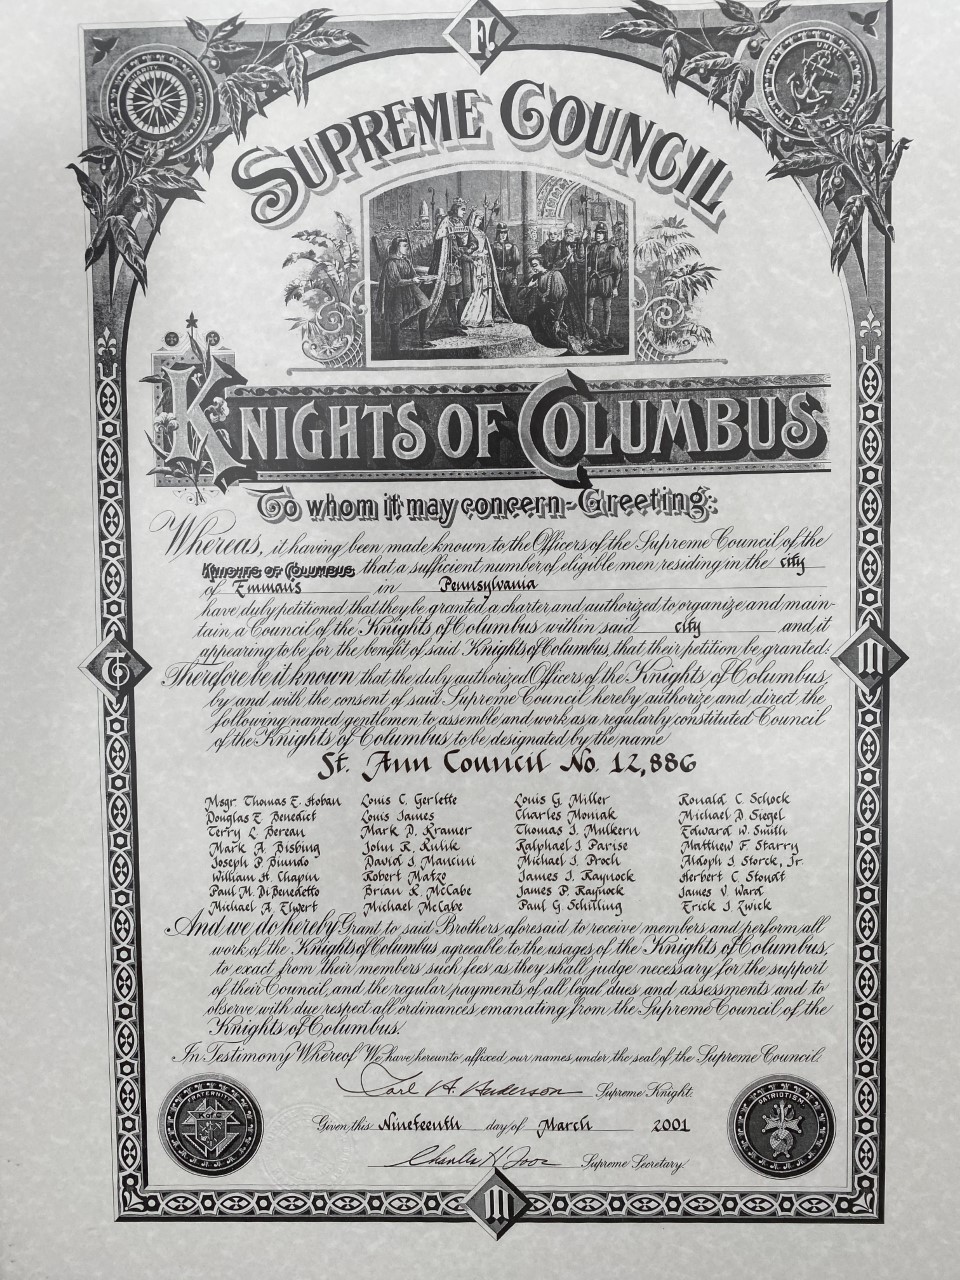 F.
CHARITY
UNITY
SUPREME COUNCIL
KNIGHTS OF COLUMBUS
To whom it may concern-Greeting:
Whereas, it having been made known to the Officers of the Supreme Council of the
KNIGHTS OF COLUMBUS that a sufficient number of eligible men residing in the city
of Emmaus in Pennsylvania
have duly petitioned that they be granted a charter and authorized to organize and main-
tain a Council of the Knights of Columbus within said city and it
appearing to be for the benefit of said Knights of Columbus, that their petition be granted:
Therefore be it known that the duly authorized Officers of the Knights of Columbus,
by and with the consent of said Supreme Council hereby authorize and direct the
following named gentlemen to assemble and work as a regularly constituted Council
of the Knights of Columbus to be designated by the name
St. Ann Council No. 12,886
Msgr. Thomas E. Hoban Louis C. Gerlette Louis G. Miller Ronald C. Schock
Douglas E. Benedict Louis James Charles Moniak Michael D. Siegel
Terry L. Bereau Mark D. Kramer Thomas J. Mulkern Edward W. Smith
Mark A. Bisbing John R. Kulik Ralphael J. Parise Matthew F. Starry
Joseph P. Biundo David J. Mancini Michael J. Proch Aldoph J. Storck, Jr.
William H. Chapin Robert Matzo James J. Raynock Herbert C. Stoudt
Paul M. DiBenedetto Brian R. McCabe James P. Raynock James V. Ward
Michael A. Elwert Michael McCabe Paul G. Schilling Erick J. Zwick
And we do hereby Grant to said Brothers aforesaid to receive members and perform all
work of the Knights of Columbus agreeable to the usages of the Knights of Columbus,
to exact from their members such fees as they shall judge necessary for the support
of their Council, and the regular payments of all legal dues and assessments and to
observe with due respect all ordinances emanating from the Supreme Council of the
Knights of Columbus.
In Testimony Whereof We have hereunto affixed our names, under the seal of the Supreme Council.
Carl A. Anderson Supreme Knight.
FRATERNITY
K of C
PATRIOTISM
Given this Nineteenth day of March 2001
Charles H. Foos Supreme Secretary.